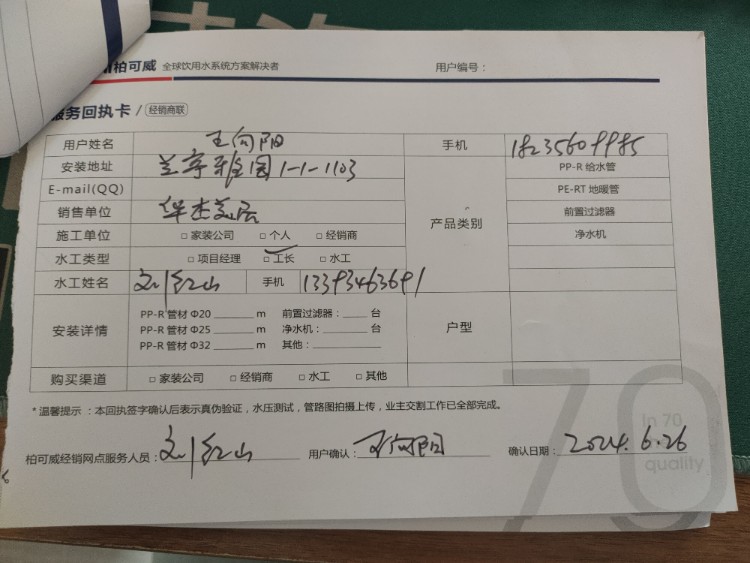 柏可威 全球饮用水系统方案解决者 用户编号：
服务回执卡 / 经销商联
用户姓名 王向阳 手机 18235609985
安装地址 兰亭雅园1-1-1103 产品类别 PP-R 给水管
E-mail(QQ) PE-RT 地暖管
销售单位 华杰美居 前置过滤器
施工单位 □ 家装公司 □ 个人 □ 经销商 净水机
水工类型 □ 项目经理 □ 工长 □ 水工
水工姓名 刘红山 手机 13393463691
安装详情 户型
PP-R 管材 Φ20 m 前置过滤器： 台
PP-R 管材 Φ25 m 净水机： 台
PP-R 管材 Φ32 m 其他：
购买渠道 □ 家装公司 □ 经销商 □ 水工 □ 其他
* 温馨提示：本回执签字确认后表示真伪验证，水压测试，管路图拍摄上传，业主交割工作已全部完成。
柏可威经销网点服务人员： 刘红山 用户确认： 王向阳 确认日期： 2024.6.26
70
In 70
quality